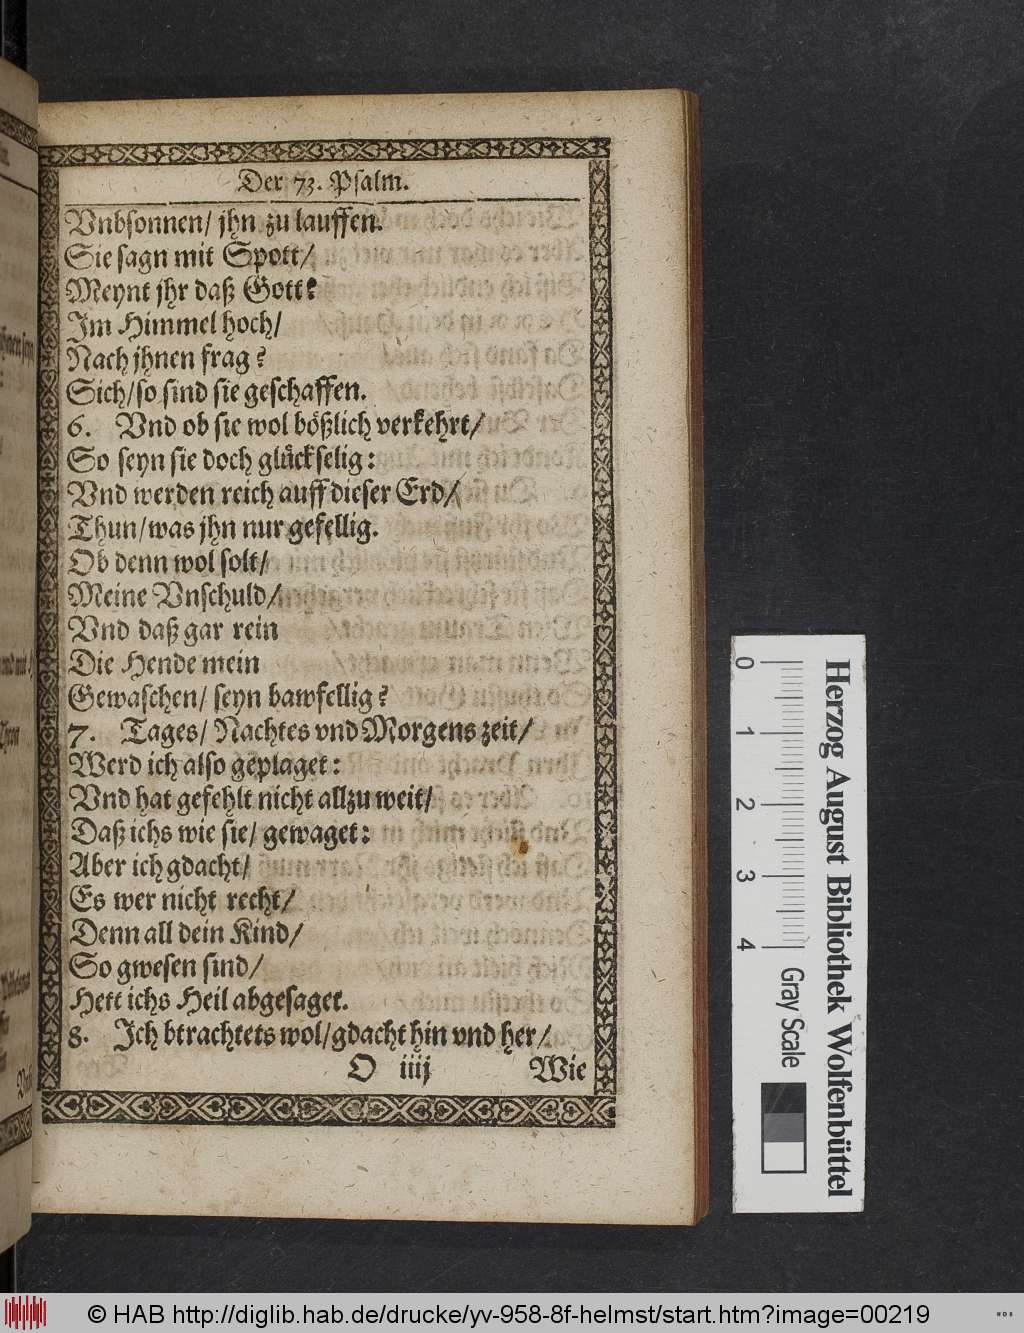 Der 73. Psalm.
Vnbsonnen/ jhn zu lauffen.
Sie sagn mit Spott/
Meynt jhr daß Gott?
Im Himmel hoch/
Nach jhnen frag?
Sich/ so sind sie geschaffen.
6. Vnd ob sie wol bößlich verkehrt/
So seyn sie doch glückselig:
Vnd werden reich auff dieser Erd/
Thun/ was jhn nur gefellig.
Ob denn wol solt/
Meine Vnschuld/
Vnd daß gar rein
Die Hende mein
Gewaschen/ seyn bawfellig?
7. Tages/ Nachtes vnd Morgens zeit/
Werd ich also geplaget:
Vnd hat gefehlt nicht allzu weit/
Daß ichs wie sie/ gewaget:
Aber ich gdacht/
Es wer nicht recht/
Denn all dein Kind/
So gwesen sind/
Hett ichs Heil abgesaget.
8. Ich btrachtets wol/ gdacht hin vnd her/
O iiij Wie
Herzog August Bibliothek Wolfenbüttel
0 1 2 3 4 Gray Scale
© HAB http://diglib.hab.de/drucke/yv-958-8f-helmst/start.htm?image=00219